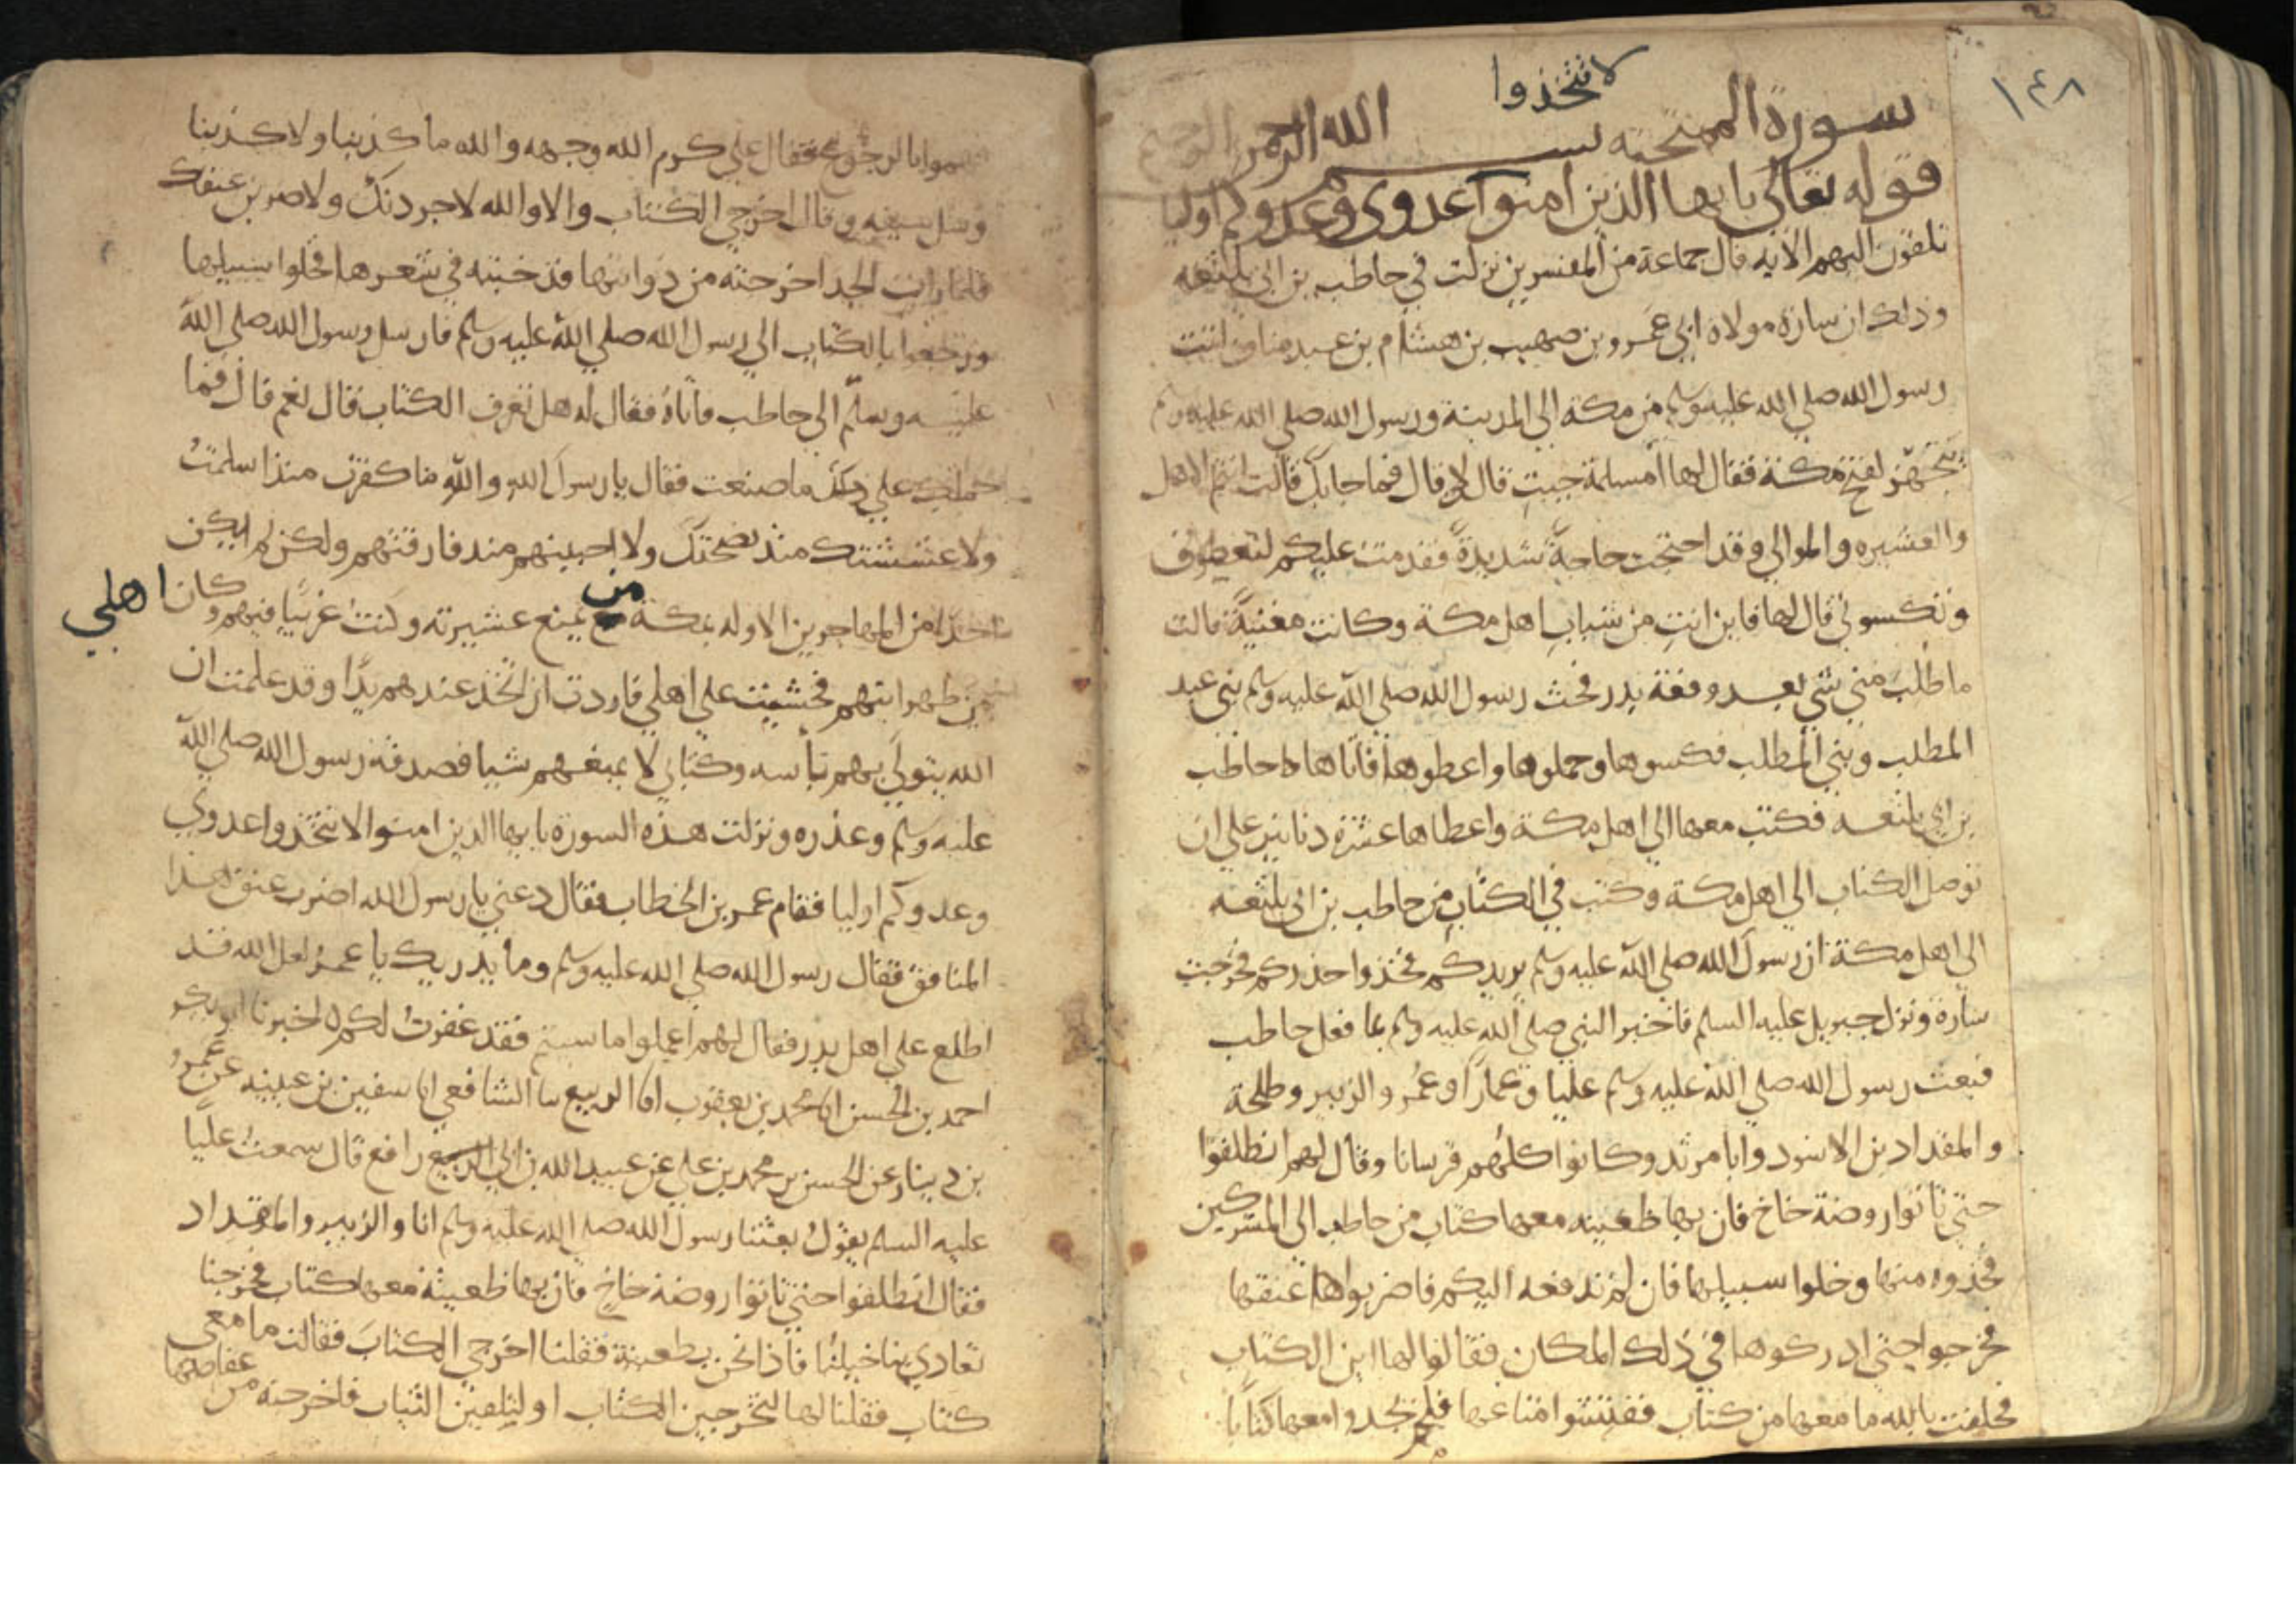 ١٤٨
لا تتخذوا
سورة الممتحنه بسم الله الرحمن الرحيم
قوله تعالى يا يها الذين امنوا عدوى وعدوكم اوليا
تلقون اليهم الايه قال جماعة من المفسرين نزلت في حاطب بن ابى بلتعه
وذلك ان سارة مولاة ابي عمرو بن صهيب بن هشام بن عبد مناف اتت
رسول الله صلي الله عليه وسلم من مكة الى المدينة ورسول الله صلي الله عليه وسلم
يتجهز لفتح مكة فقال لها امسلمة جيت قال لا قال فما جا بك قالت انتم الاهل
والعشيره والموالي وقد احتجت حاجة شديدة فقدمت عليكم لتعطوني
وتكسوني قال لها فاين انت من شباب اهل مكة وكانت مغنية قالت
ما طلب مني شي بعد وقعة بدر فحث رسول الله صلي الله عليه وسلم بني عبد
المطلب وبني المطلب فكسوها وحملوها واعطوها فاتاها حاطب
بن ابي بلتعه فكتب معها الى اهل مكة واعطاها عشرة دنانير علي ان
توصل الكتاب الى اهل مكة وكتب في الكتاب من حاطب بن ابى بلتعه
الى اهل مكة ان رسول الله صلي الله عليه وسلم يريدكم فخذوا حذركم فخرجت
سارة ونزل جبريل عليه السلم فاخبر النبي صلي الله عليه وسلم بما فعل حاطب
فبعث رسول الله صلي الله عليه وسلم عليا وعمارا وعمر والزبير وطلحة
والمقداد بن الاسود وابا مرثد وكانوا كلهم فرسانا وقال لهم انطلقوا
حتي تاتوا روضة خاخ فان بها ظعينه معها كتاب من حاطب الى المشركين
فخذوه منها وخلوا سبيلها فان لم تدفعه اليكم فاضربوا عنقها
فخرجوا حتي ادركوها في ذلك المكان فقالوا لها اين الكتاب
فحلفت بالله ما معها من كتاب ففتشوا متاعها فلم يجدوا معها كتابا
فهموا بالرجوع فقال علي كرم الله وجهه والله ما كذبنا ولا كذبنا
وسل سيفه وقال اخرجي الكتاب والا والله لاجردنك ولاضربن عنقك
فلما رات الجد اخرجته من ذوابتها قد خبته في شعرها فخلوا سبيلها
ورجعوا بالكتاب الى رسول الله صلي الله عليه وسلم فارسل رسول الله صلي الله
عليه وسلم الى حاطب فاتاه فقال له هل تعرف الكتاب قال نعم قال فما
حملك علي ما صنعت فقال يا رسول الله والله ما كفرت منذ اسلمت
ولا غششتك منذ نصحتك ولا احببتهم منذ فارقتهم ولكن لم يكن
احدا من المهاجرين الا وله بمكة من يمنع عشيرته وكنت غريبا فيهم وكان اهلي
بين ظهرانيهم فخشيت علي اهلي فاردت ان اتخذ عندهم يدا وقد علمت ان
الله يتولي بهم بأسه وكتابي لا يمنعهم شيا فصدقه رسول الله صلي الله
عليه وسلم وعذره ونزلت هذه السورة يا يها الذين امنوا لا تتخذوا عدوي
وعدوكم اوليا فقام عمر بن الخطاب فقال دعني يا رسول الله اضرب عنق هذا
المنافق فقال رسول الله صلي الله عليه وسلم وما يدريك يا عمر لعل الله قد
اطلع علي اهل بدر فقال لهم اعملوا ما سيتم فقد غفرت لكم اخبرنا ابو بكر
احمد بن الحسن انا محمد بن يعقوب انا الربيع نا الشافعي انا سفين بن عيينه عن عمرو
بن دينار عن الحسن بن محمد بن علي عن عبيد الله بن ابي رافع قال سمعت عليا
عليه السلم يقول بعثنا رسول الله صلي الله عليه وسلم انا والزبير والمقداد
فقال انطلقوا حتي تاتوا روضة خاخ فان بها ظعينة معها كتاب فخرجنا
تعادي بنا خيلنا فاذا نحن بظعينة فقلنا اخرجي الكتاب فقالت ما معي
كتاب فقلنا لها لتخرجين الكتاب او لتلقين الثياب فاخرجته من عقاصها